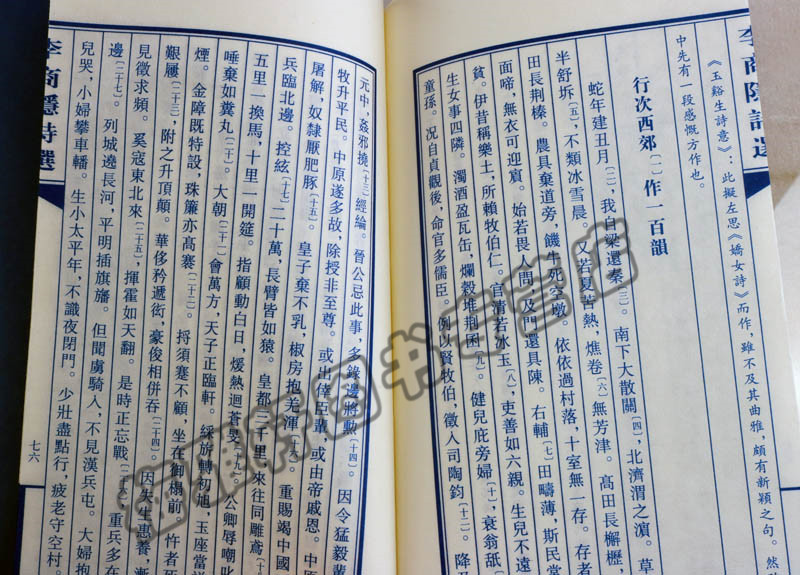 李商隱詩選
《玉谿生詩意》：此擬左思《嬌女詩》而作，雖不及其曲雅，頗有新穎之句。然
中先有一段感慨方作也。
行次西郊〔一〕作一百韻
蛇年建丑月〔二〕，我自梁還秦〔三〕。南下大散關〔四〕，北濟渭之濱。草
半舒坼〔五〕，不類冰雪晨。又若夏苦熱，燋卷〔六〕無芳津。高田長檞櫪，
田長荆榛。農具棄道旁，饑牛死空墩。依依過村落，十室無一存。存者
面啼，無衣可迎賓。始若畏人問，及門還具陳。右輔〔七〕田疇薄，斯民常
貧。伊昔稱樂土，所賴牧伯仁。官清若冰玉〔八〕，吏善如六親。生兒不遠
生女事四隣。濁酒盈瓦缶，爛穀堆荆囷〔九〕。健兒庇旁婦〔十一〕，衰翁舐
童孫。况自貞觀後，命官多儒臣。例以賢牧伯，徵入司陶鈞〔十二〕。降及
元中，姦邪撓〔十三〕經綸。晉公忌此事，多錄邊將勳〔十四〕。因令猛毅輩
牧升平民。中原遂多故，除授非至尊。或出倖臣輩，或由帝戚恩。中
屠解，奴隸厭肥豚〔十五〕。皇子棄不乳，椒房抱羌渾〔十六〕。重賜竭中國
兵臨北邊。控絃〔十七〕二十萬，長臂皆如猿。皇都三千里，來往同雕鳶〔
五里一換馬，十里一開筵。指顧動白日，煖熱迴蒼旻〔十九〕。公卿辱嘲叱
唾棄如糞丸〔二十〕。大朝〔二十一〕會萬方，天子正臨軒。綵旂轉初旭，玉座當祥
煙。金障既特設，珠簾亦高褰〔二十二〕。捋須蹇不顧，坐在御榻前。忤者死
艱屨〔二十三〕，附之升頂顛。華侈矜遞衒，豪俊相併吞〔二十四〕。因失生惠養，漸
見徵求頻。奚寇東北來〔二十五〕，揮霍如天翻。是時正忘戰〔二十六〕，重兵多在
邊〔二十七〕。列城遶長河，平明插旗旛。但聞虜騎入，不見漢兵屯。大婦抱
兒哭，小婦攀車轓。生小太平年，不識夜閉門。少壯盡點行，疲老守空村。
李商隱詩選
七六